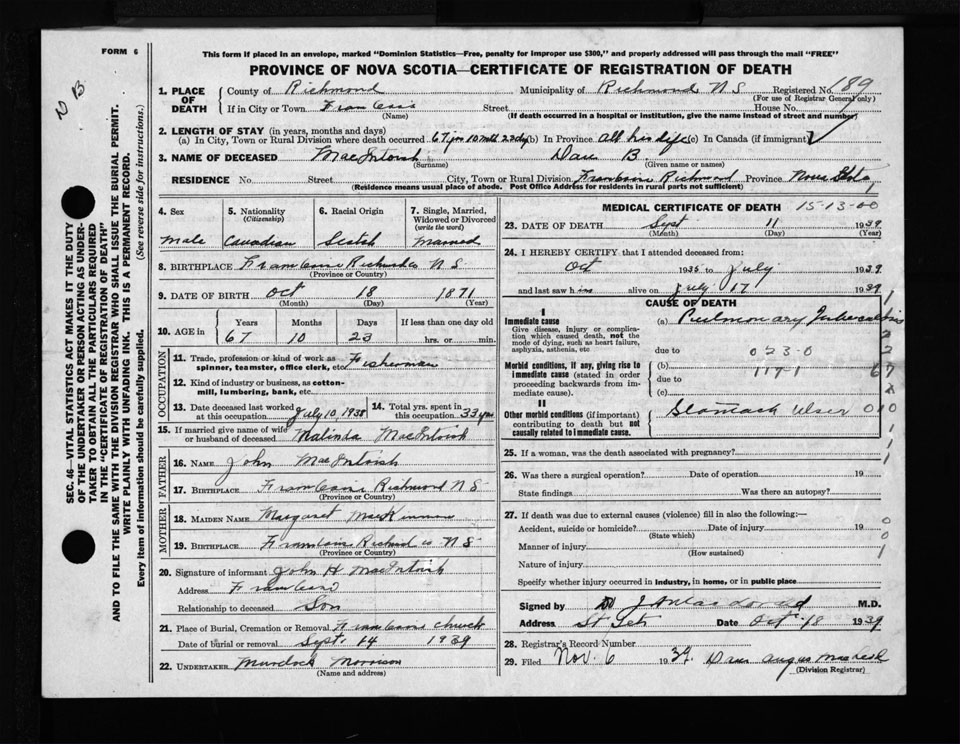 FORM 6
This form if placed in an envelope, marked "Dominion Statistics—Free, penalty for improper use $300," and properly addressed will pass through the mail "FREE"
PROVINCE OF NOVA SCOTIA—CERTIFICATE OF REGISTRATION OF DEATH
1. PLACE OF DEATH
County of Richmond Municipality of Richmond N S Registered No. 189
(For use of Registrar General only)
If in City or Town Street House No.
(Name) (If death occurred in a hospital or institution, give the name instead of street and number)
2. LENGTH OF STAY (in years, months and days)
(a) In City, Town or Rural Division where death occurred 67 yrs 10 mth 23 dy (b) In Province All his life (c) In Canada (if immigrant)
3. NAME OF DECEASED MacIntosh Dan B.
(Surname) (Given name or names)
RESIDENCE No. Street City, Town or Rural Division Framboise Richmond Province Nova Scotia
(Residence means usual place of abode. Post Office Address for residents in rural parts not sufficient)
4. Sex 5. Nationality 6. Racial Origin 7. Single, Married, Widowed or Divorced
(Citizenship) (write the word)
Male Canadian Scotch Married
8. BIRTHPLACE Framboise Richmond Co N S
(Province or Country)
9. DATE OF BIRTH Oct 18 1871
(Month) (Day) (Year)
10. AGE in Years Months Days If less than one day old
67 10 23 hrs. or min.
OCCUPATION
11. Trade, profession or kind of work as spinner, teamster, office clerk, etc. Fisherman
12. Kind of industry or business, as cotton-mill, lumbering, bank, etc.
13. Date deceased last worked at this occupation July 10, 1938 14. Total yrs. spent in this occupation 33 yrs
15. If married give name of wife or husband of deceased Malinda MacIntosh
FATHER
16. NAME John MacIntosh
17. BIRTHPLACE Framboise Richmond N S
(Province or Country)
MOTHER
18. MAIDEN NAME Margaret MacKinnon
19. BIRTHPLACE Framboise Richmond Co N S
(Province or Country)
20. Signature of informant John H MacIntosh
Address Framboise
Relationship to deceased Son
21. Place of Burial, Cremation or Removal Framboise Church
Date of burial or removal Sept. 14 1939
22. UNDERTAKER Murdock Morrison
(Name and address)
MEDICAL CERTIFICATE OF DEATH 15-13-00
23. DATE OF DEATH Sept 11 1939
(Month) (Day) (Year)
24. I HEREBY CERTIFY that I attended deceased from:
Oct 1935 to July 1939
and last saw him alive on July 17 1939
CAUSE OF DEATH
I
Immediate cause (a) Pulmonary Tuberculosis
Give disease, injury or complication which caused death, not the mode of dying, such as heart failure, asphyxia, asthenia, etc
due to 023-0
Morbid conditions, if any, giving rise to immediate cause (stated in order proceeding backwards from immediate cause).
(b) 117-1
due to
(c)
II
Other morbid conditions (if important) contributing to death but not causally related to immediate cause.
Stomach ulser
25. If a woman, was the death associated with pregnancy?
26. Was there a surgical operation? Date of operation 19
State findings Was there an autopsy?
27. If death was due to external causes (violence) fill in also the following:—
Accident, suicide or homicide? Date of injury 19
(State which)
Manner of injury
(How sustained)
Nature of injury
Specify whether injury occurred in industry, in home, or in public place
Signed by M.D.
Address St Peters Date Oct 18 1939
28. Registrar's Record Number
29. Filed Nov. 6 1939 Dan Angus MacLeod
(Division Registrar)
SEC. 46—VITAL STATISTICS ACT MAKES IT THE DUTY
OF THE UNDERTAKER OR PERSON ACTING AS UNDER-
TAKER TO OBTAIN ALL THE PARTICULARS REQUIRED
IN THE "CERTIFICATE OF REGISTRATION OF DEATH"
AND TO FILE THE SAME WITH THE DIVISION REGISTRAR WHO SHALL ISSUE THE BURIAL PERMIT.
WRITE PLAINLY WITH UNFADING INK. THIS IS A PERMANENT RECORD.
Every item of information should be carefully supplied. (See reverse side for instructions.)